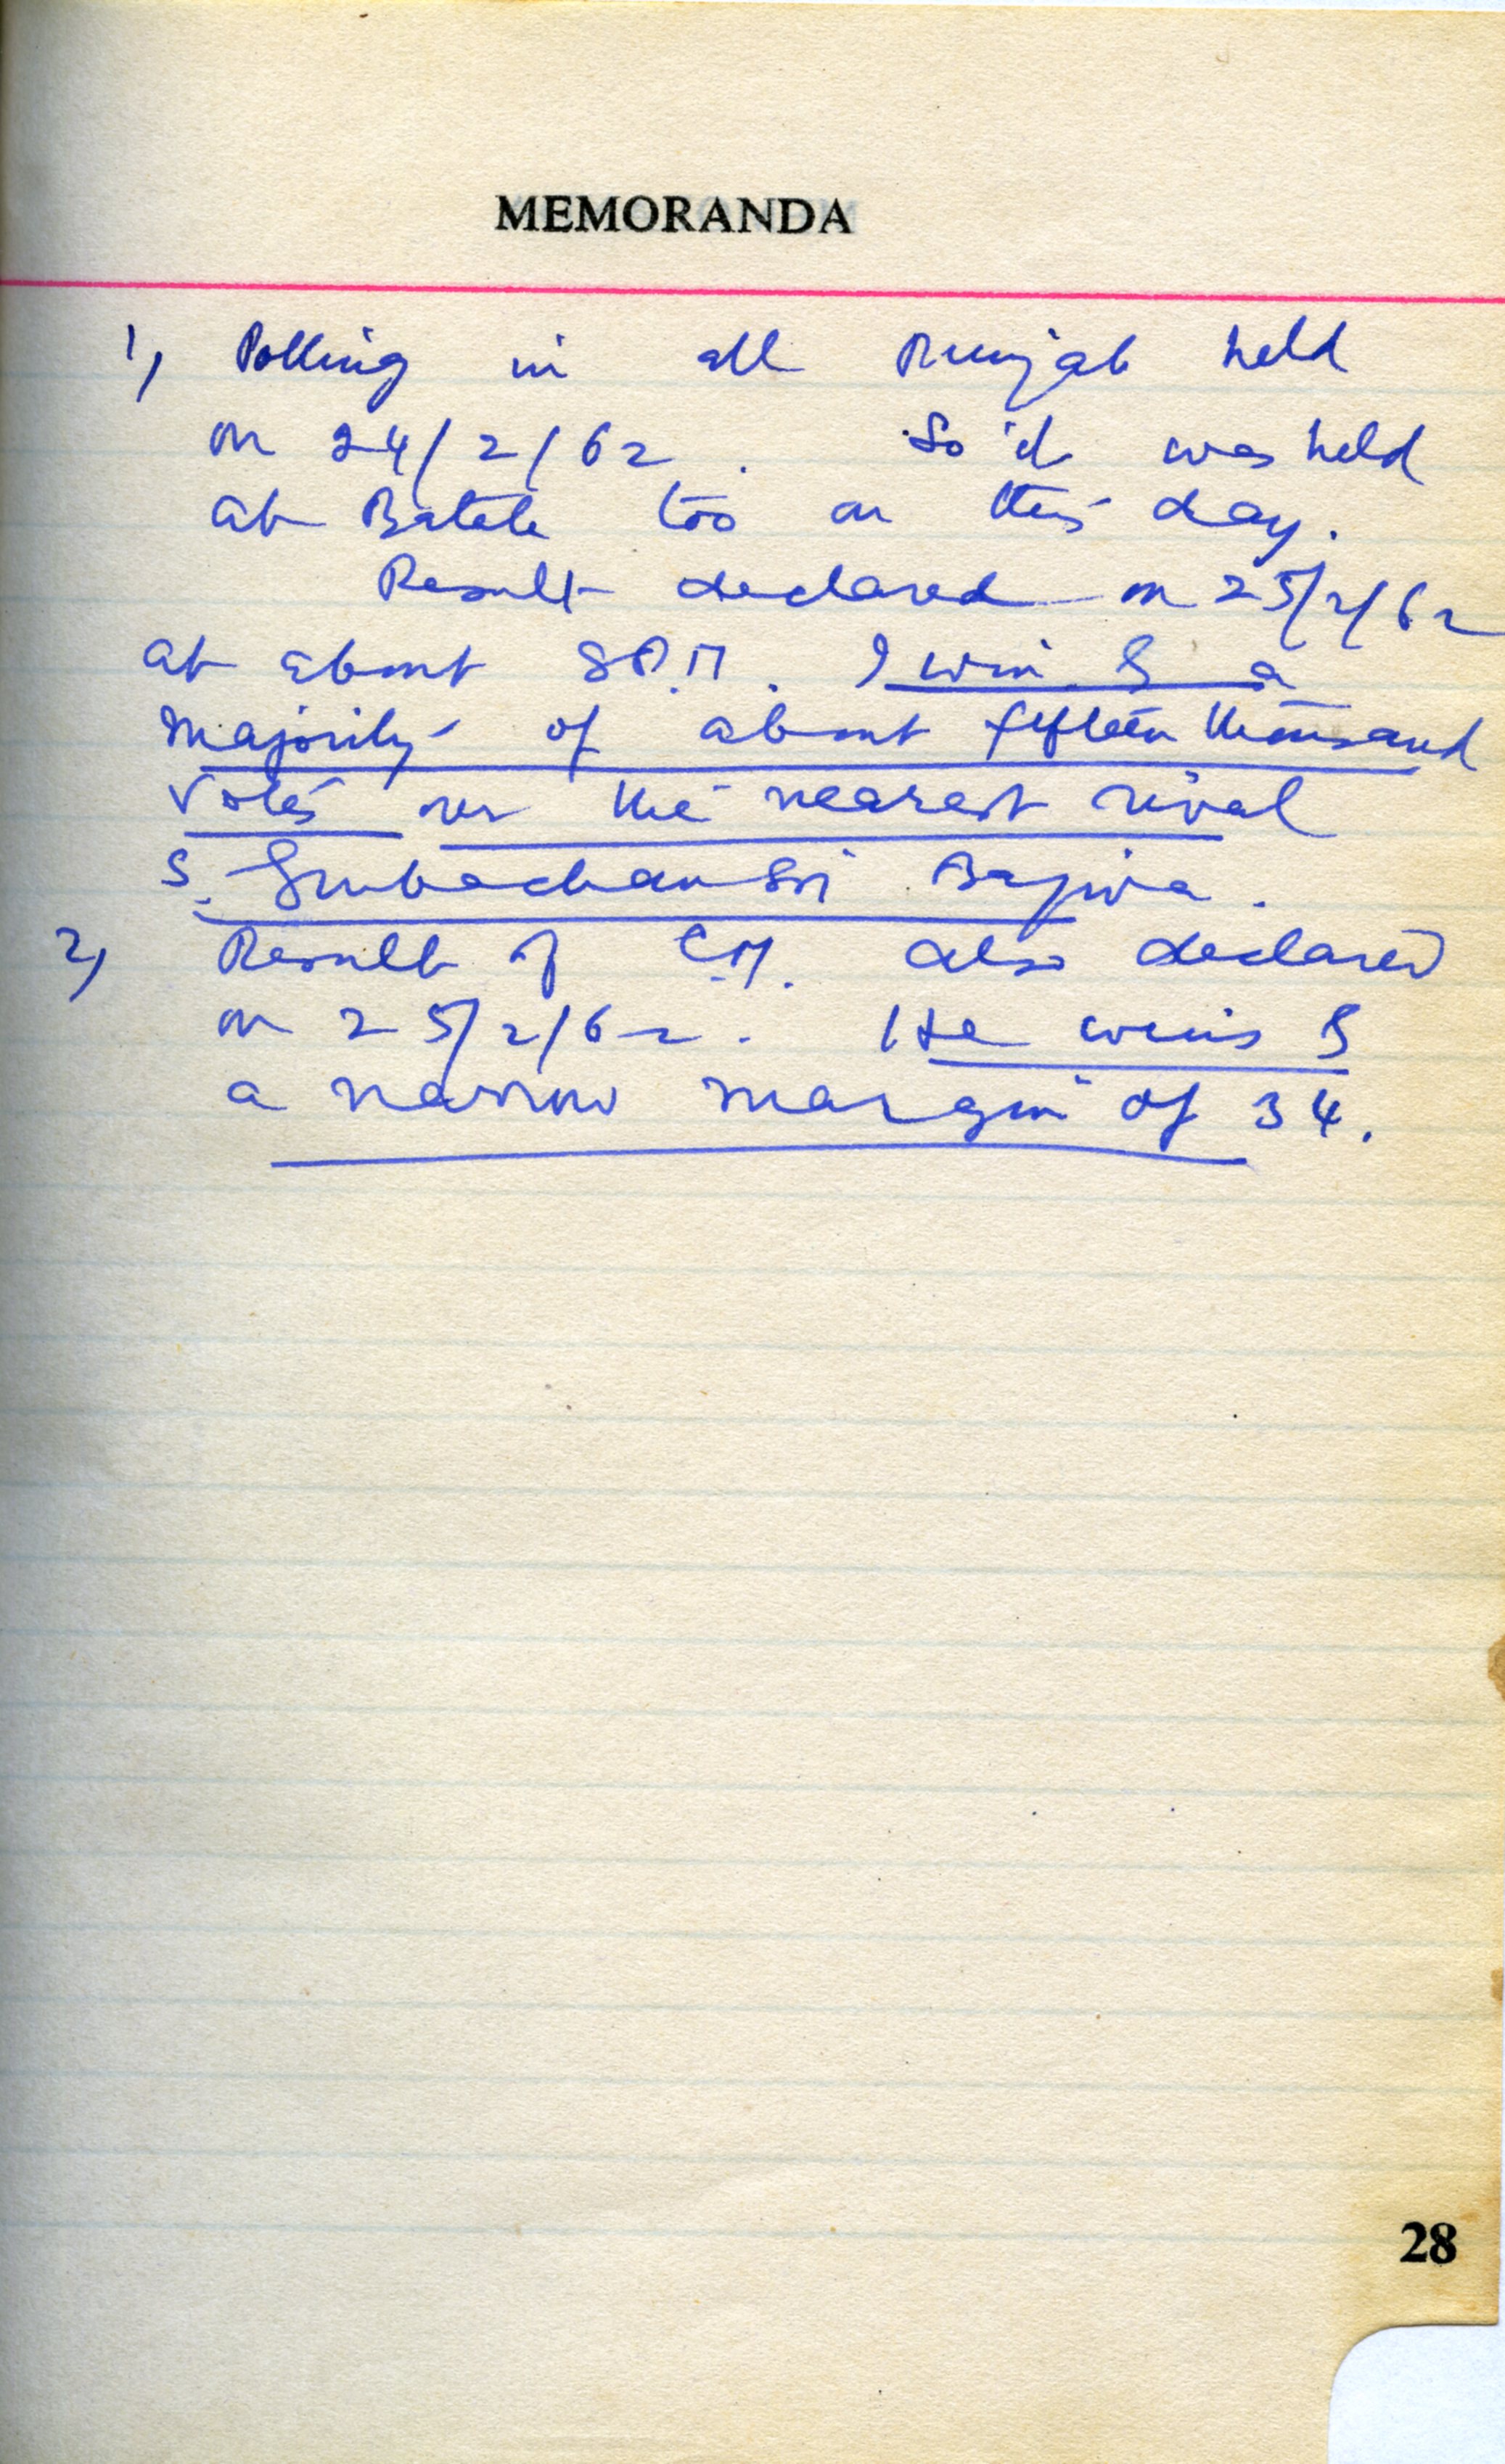 MEMORANDA
1) Polling in all Punjab held
on 24/2/62. So it was held
at Batala too on this day.
Result declared on 25/2/62
at about 8 P.M. I win by a
majority of about fifteen thousand
votes over the nearest rival
S. Gurbachan Singh Bajwa.
2) Result of C.M. also declared
on 25/2/62. He wins by
a narrow margin of 34.
28